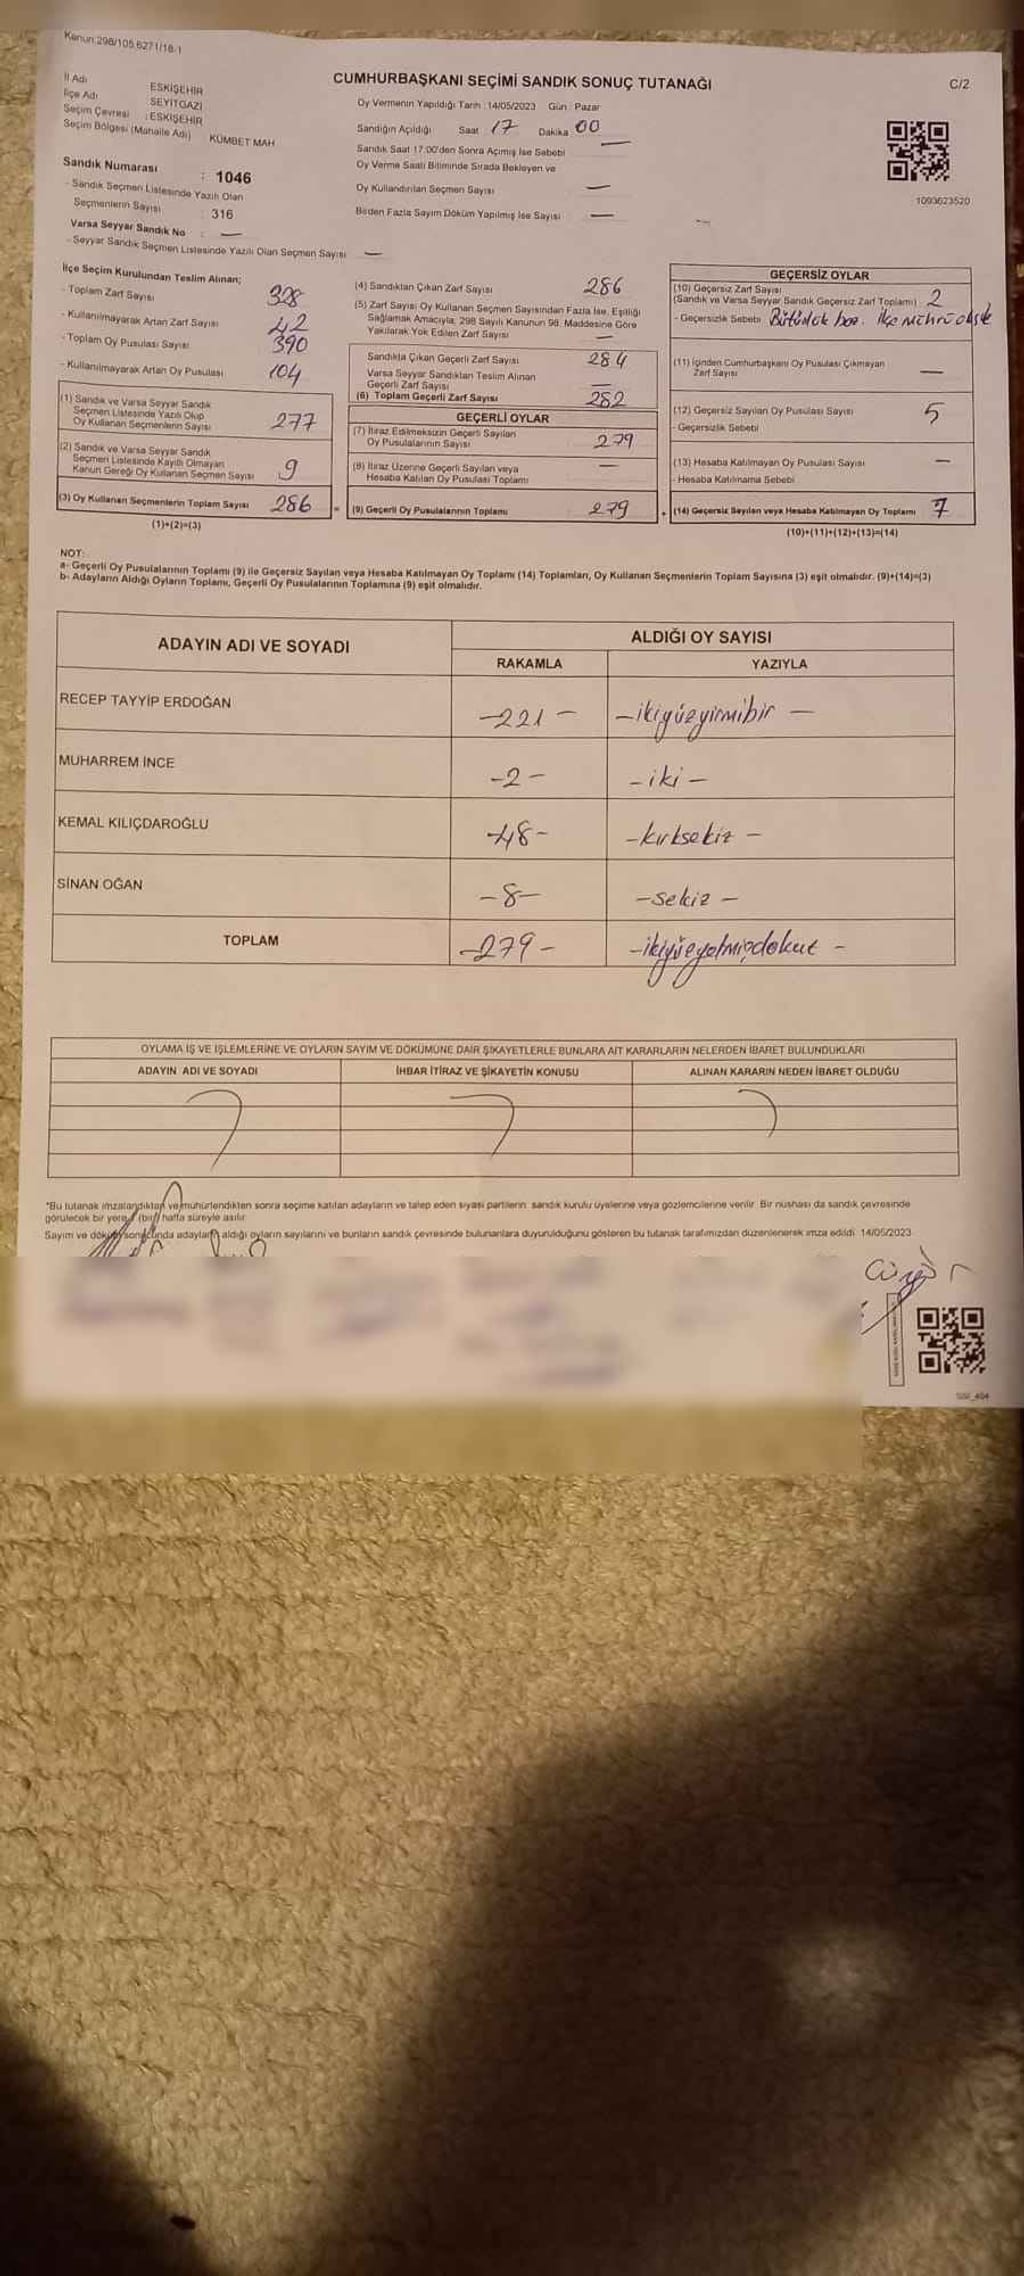 Kanun:298/105,6271/18-1
CUMHURBAŞKANI SEÇİMİ SANDIK SONUÇ TUTANAĞI
C/2
İl Adı ESKİŞEHİR
İlçe Adı : SEYİTGAZİ
Seçim Çevresi : ESKİŞEHİR
Seçim Bölgesi (Mahalle Adı) KÜMBET MAH
Sandık Numarası : 1046
- Sandık Seçmen Listesinde Yazılı Olan
Seçmenlerin Sayısı : 316
Varsa Seyyar Sandık No : —
- Seyyar Sandık Seçmen Listesinde Yazılı Olan Seçmen Sayısı —
Oy Vermenin Yapıldığı Tarih :14/05/2023 Gün : Pazar
Sandığın Açıldığı Saat 17 Dakika 00
Sandık Saat 17:00'den Sonra Açılmış İse Sebebi —
Oy Verme Saati Bitiminde Sırada Bekleyen ve
Oy Kullandırılan Seçmen Sayısı —
Birden Fazla Sayım Döküm Yapılmış İse Sayısı —
1093623520
İlçe Seçim Kurulundan Teslim Alınan;
- Toplam Zarf Sayısı 328
- Kullanılmayarak Artan Zarf Sayısı 42
- Toplam Oy Pusulası Sayısı 390
- Kullanılmayarak Artan Oy Pusulası 104
(1) Sandık ve Varsa Seyyar Sandık
Seçmen Listesinde Yazılı Olup
Oy Kullanan Seçmenlerin Sayısı 277
(2) Sandık ve Varsa Seyyar Sandık
Seçmen Listesinde Kayıtlı Olmayan
Kanun Gereği Oy Kullanan Seçmen Sayısı 9
(3) Oy Kullanan Seçmenlerin Toplam Sayısı 286
(1)+(2)=(3)
(4) Sandıktan Çıkan Zarf Sayısı 286
(5) Zarf Sayısı Oy Kullanan Seçmen Sayısından Fazla İse, Eşitliği
Sağlamak Amacıyla, 298 Sayılı Kanunun 98. Maddesine Göre
Yakılarak Yok Edilen Zarf Sayısı —
Sandıkta Çıkan Geçerli Zarf Sayısı 284
Varsa Seyyar Sandıktan Teslim Alınan
Geçerli Zarf Sayısı —
(6) Toplam Geçerli Zarf Sayısı 282
GEÇERLİ OYLAR
(7) İtiraz Edilmeksizin Geçerli Sayılan
Oy Pusulalarının Sayısı 279
(8) İtiraz Üzerine Geçerli Sayılan veya
Hesaba Katılan Oy Pusulası Toplamı —
= (9) Geçerli Oy Pusulalarının Toplamı 279
GEÇERSİZ OYLAR
(10) Geçersiz Zarf Sayısı
(Sandık ve Varsa Seyyar Sandık Geçersiz Zarf Toplamı) 2
- Geçersizlik Sebebi
(11) İçinden Cumhurbaşkanı Oy Pusulası Çıkmayan
Zarf Sayısı —
(12) Geçersiz Sayılan Oy Pusulası Sayısı 5
- Geçersizlik Sebebi
(13) Hesaba Katılmayan Oy Pusulası Sayısı —
- Hesaba Katılmama Sebebi
+ (14) Geçersiz Sayılan veya Hesaba Katılmayan Oy Toplamı 7
(10)+(11)+(12)+(13)=(14)
NOT:
a- Geçerli Oy Pusulalarının Toplamı (9) ile Geçersiz Sayılan veya Hesaba Katılmayan Oy Toplamı (14) Toplamları, Oy Kullanan Seçmenlerin Toplam Sayısına (3) eşit olmalıdır. (9)+(14)=(3)
b- Adayların Aldığı Oyların Toplamı, Geçerli Oy Pusulalarının Toplamına (9) eşit olmalıdır.
ADAYIN ADI VE SOYADI ALDIĞI OY SAYISI
RAKAMLA YAZIYLA
RECEP TAYYİP ERDOĞAN -221- -ikiyüzyirmibir-
MUHARREM İNCE -2- -iki-
KEMAL KILIÇDAROĞLU -48- -kırksekiz-
SİNAN OĞAN -8- -sekiz-
TOPLAM -279- -ikiyüzyetmişdokuz-
OYLAMA İŞ VE İŞLEMLERİNE VE OYLARIN SAYIM VE DÖKÜMÜNE DAİR ŞİKAYETLERLE BUNLARA AİT KARARLARIN NELERDEN İBARET BULUNDUKLARI
ADAYIN ADI VE SOYADI İHBAR İTİRAZ VE ŞİKAYETİN KONUSU ALINAN KARARIN NEDEN İBARET OLDUĞU
*Bu tutanak imzalandıktan ve mühürlendikten sonra seçime katılan adayların ve talep eden siyasi partilerin sandık kurulu üyelerine veya gözlemcilerine verilir. Bir nüshası da sandık çevresinde
görülecek bir yere (bir) hafta süreyle asılır.
Sayım ve döküm sonucunda adayların aldığı oyların sayılarını ve bunların sandık çevresinde bulunanlara duyurulduğunu gösteren bu tutanak tarafımızdan düzenlenerek imza edildi. 14/05/2023